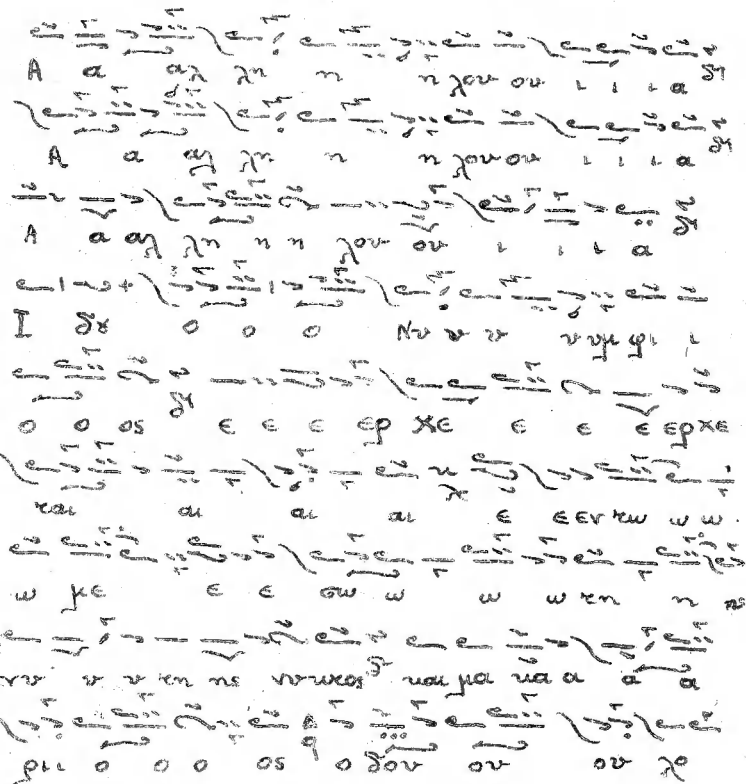 Α α αλ λη η η λου ου ι ι ι α
Α α αλ λη η η λου ου ι ι ι α
Α α αλ λη η η λου ου ι ι ι α
Ι δȣ ο ο ο Νυ υ υ υ υμ φι ι
ο ο ος ε ε ε ερ χε ε ε ε ερ χε
και αι αι αι ε ε εν τω ω ω
ω με ε ε σω ω ω ω τη η ης
νυ υ υ κτη ης νυκτος και μα κα α α α
ρι ι ο ο ο ος ο δου ου ου λο